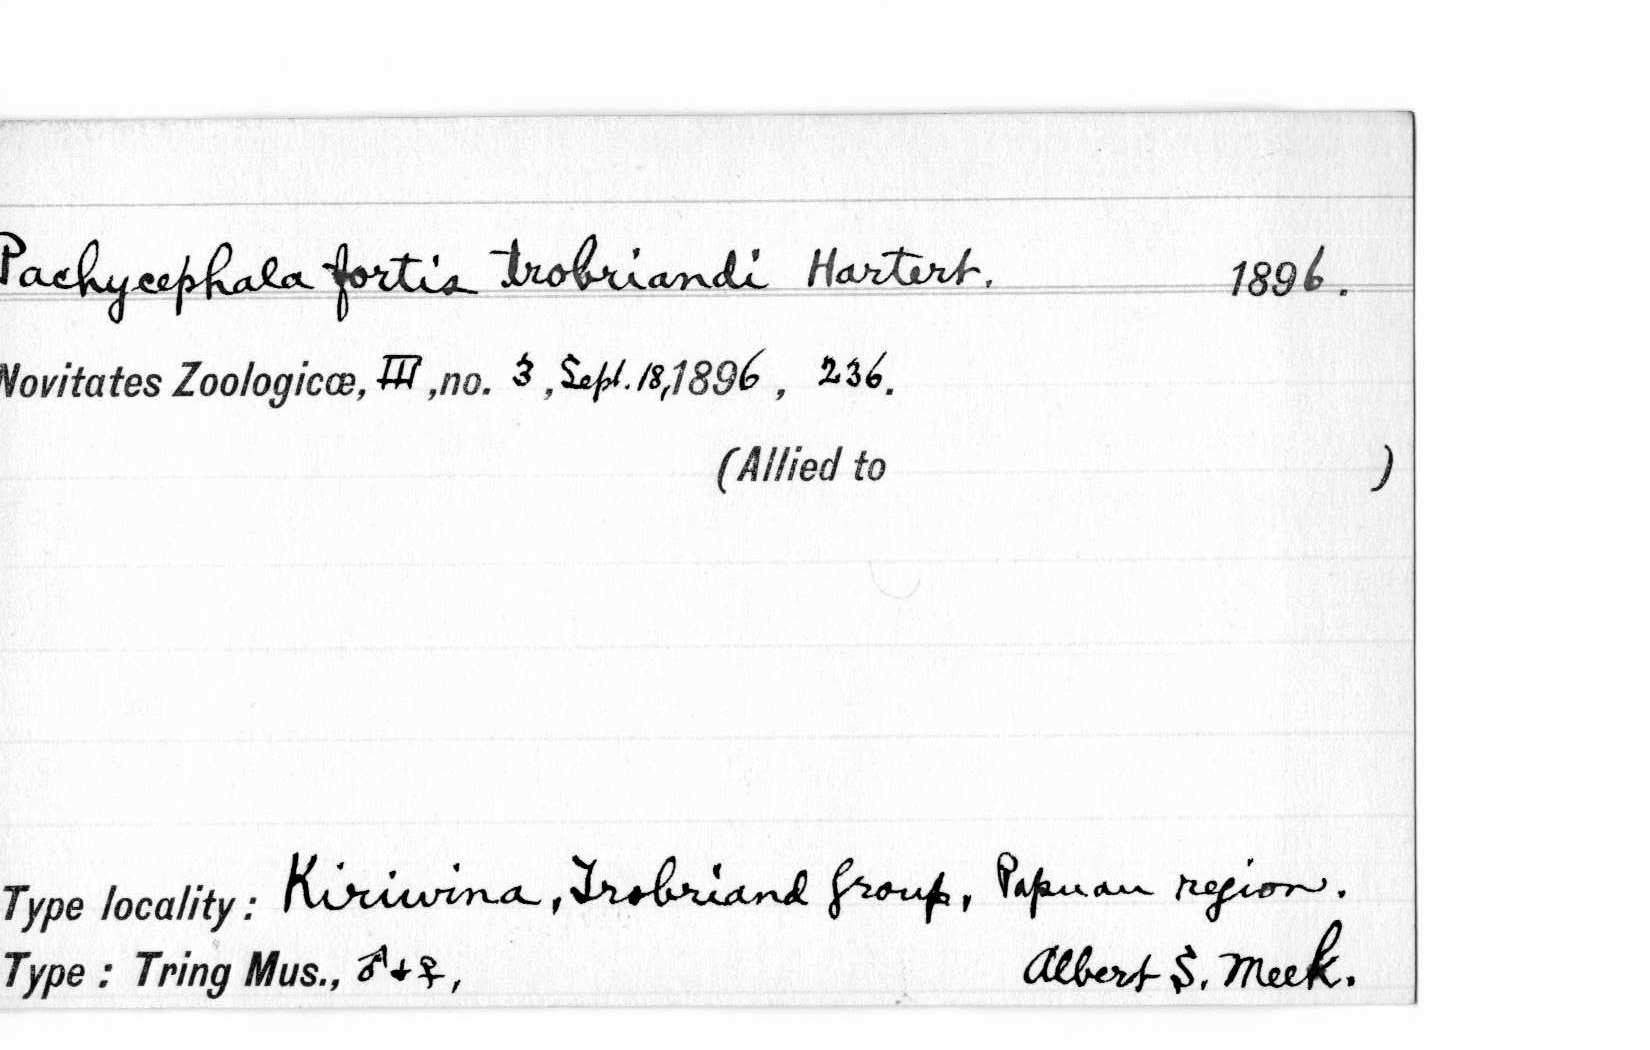 Pachycephala fortis trobriandi Hartert. 1896.
Novitates Zoologicæ, III, no. 3, Sept. 18, 1896, 236.
(Allied to )
Type locality: Kiriwina, Trobriand Group, Papuan region.
Type: Tring Mus., ♂+♀, Albert S. Meek.